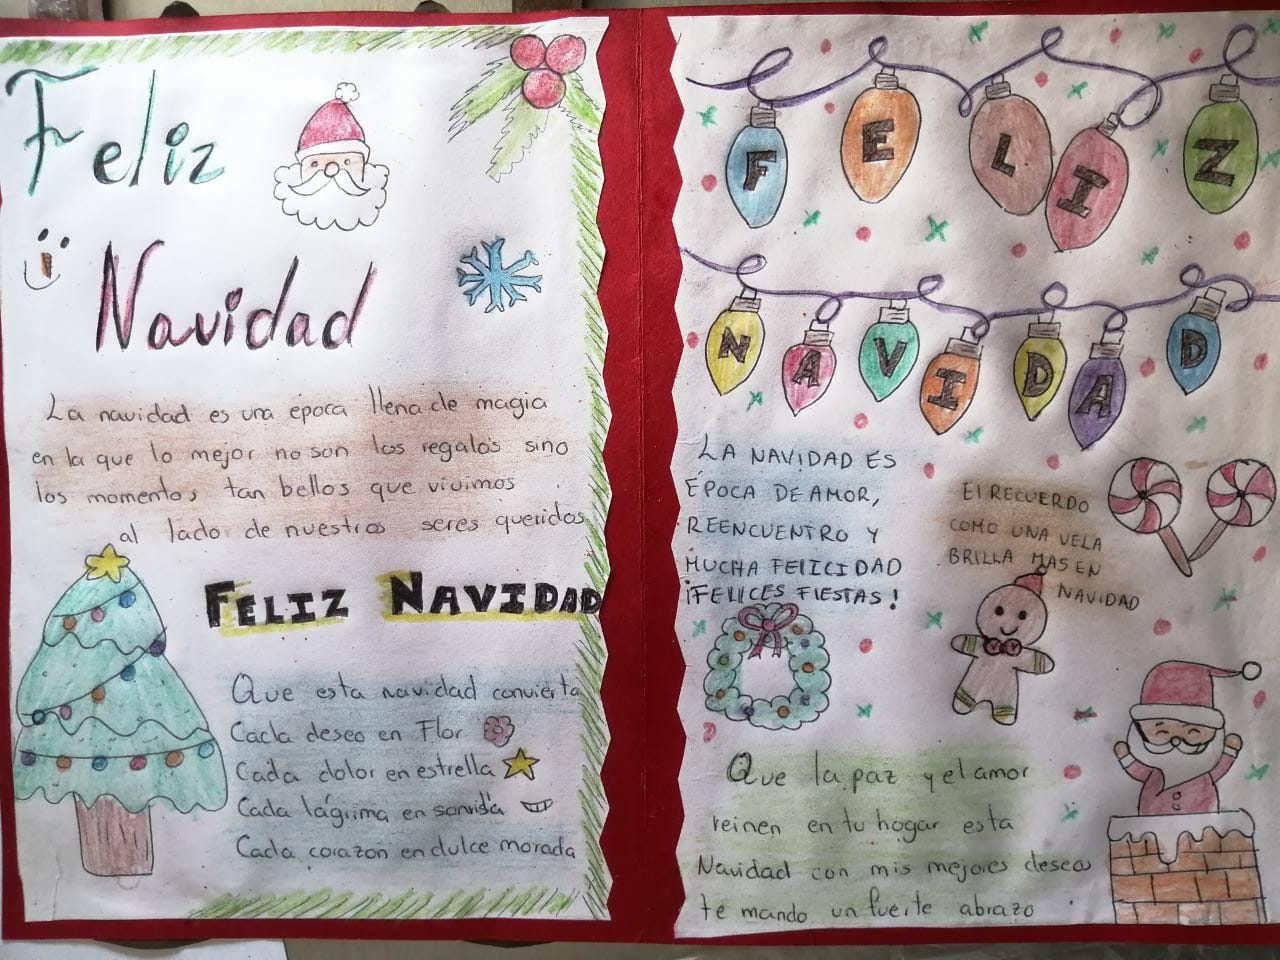 Feliz
Navidad
La navidad es una época llena de magia
en la que lo mejor no son los regalos sino
los momentos tan bellos que vivimos
al lado de nuestros seres queridos
FELIZ NAVIDAD
Que esta navidad convierta
Cada deseo en Flor
Cada dolor en estrella
Cada lágrima en sonrisa
Cada corazon en dulce morada
FELIZ
NAVIDAD
LA NAVIDAD ES
ÉPOCA DE AMOR,
REENCUENTRO Y
MUCHA FELICIDAD
¡FELICES FIESTAS!
El RECUERDO
COMO UNA VELA
BRILLA MAS EN
NAVIDAD
Que la paz y el amor
reinen en tu hogar esta
Navidad con mis mejores deseos
te mando un fuerte abrazo